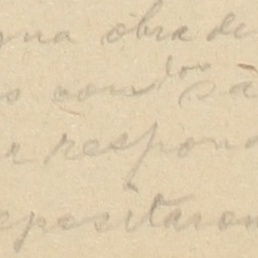 una obra de
s con los sa
e respon
epositaron